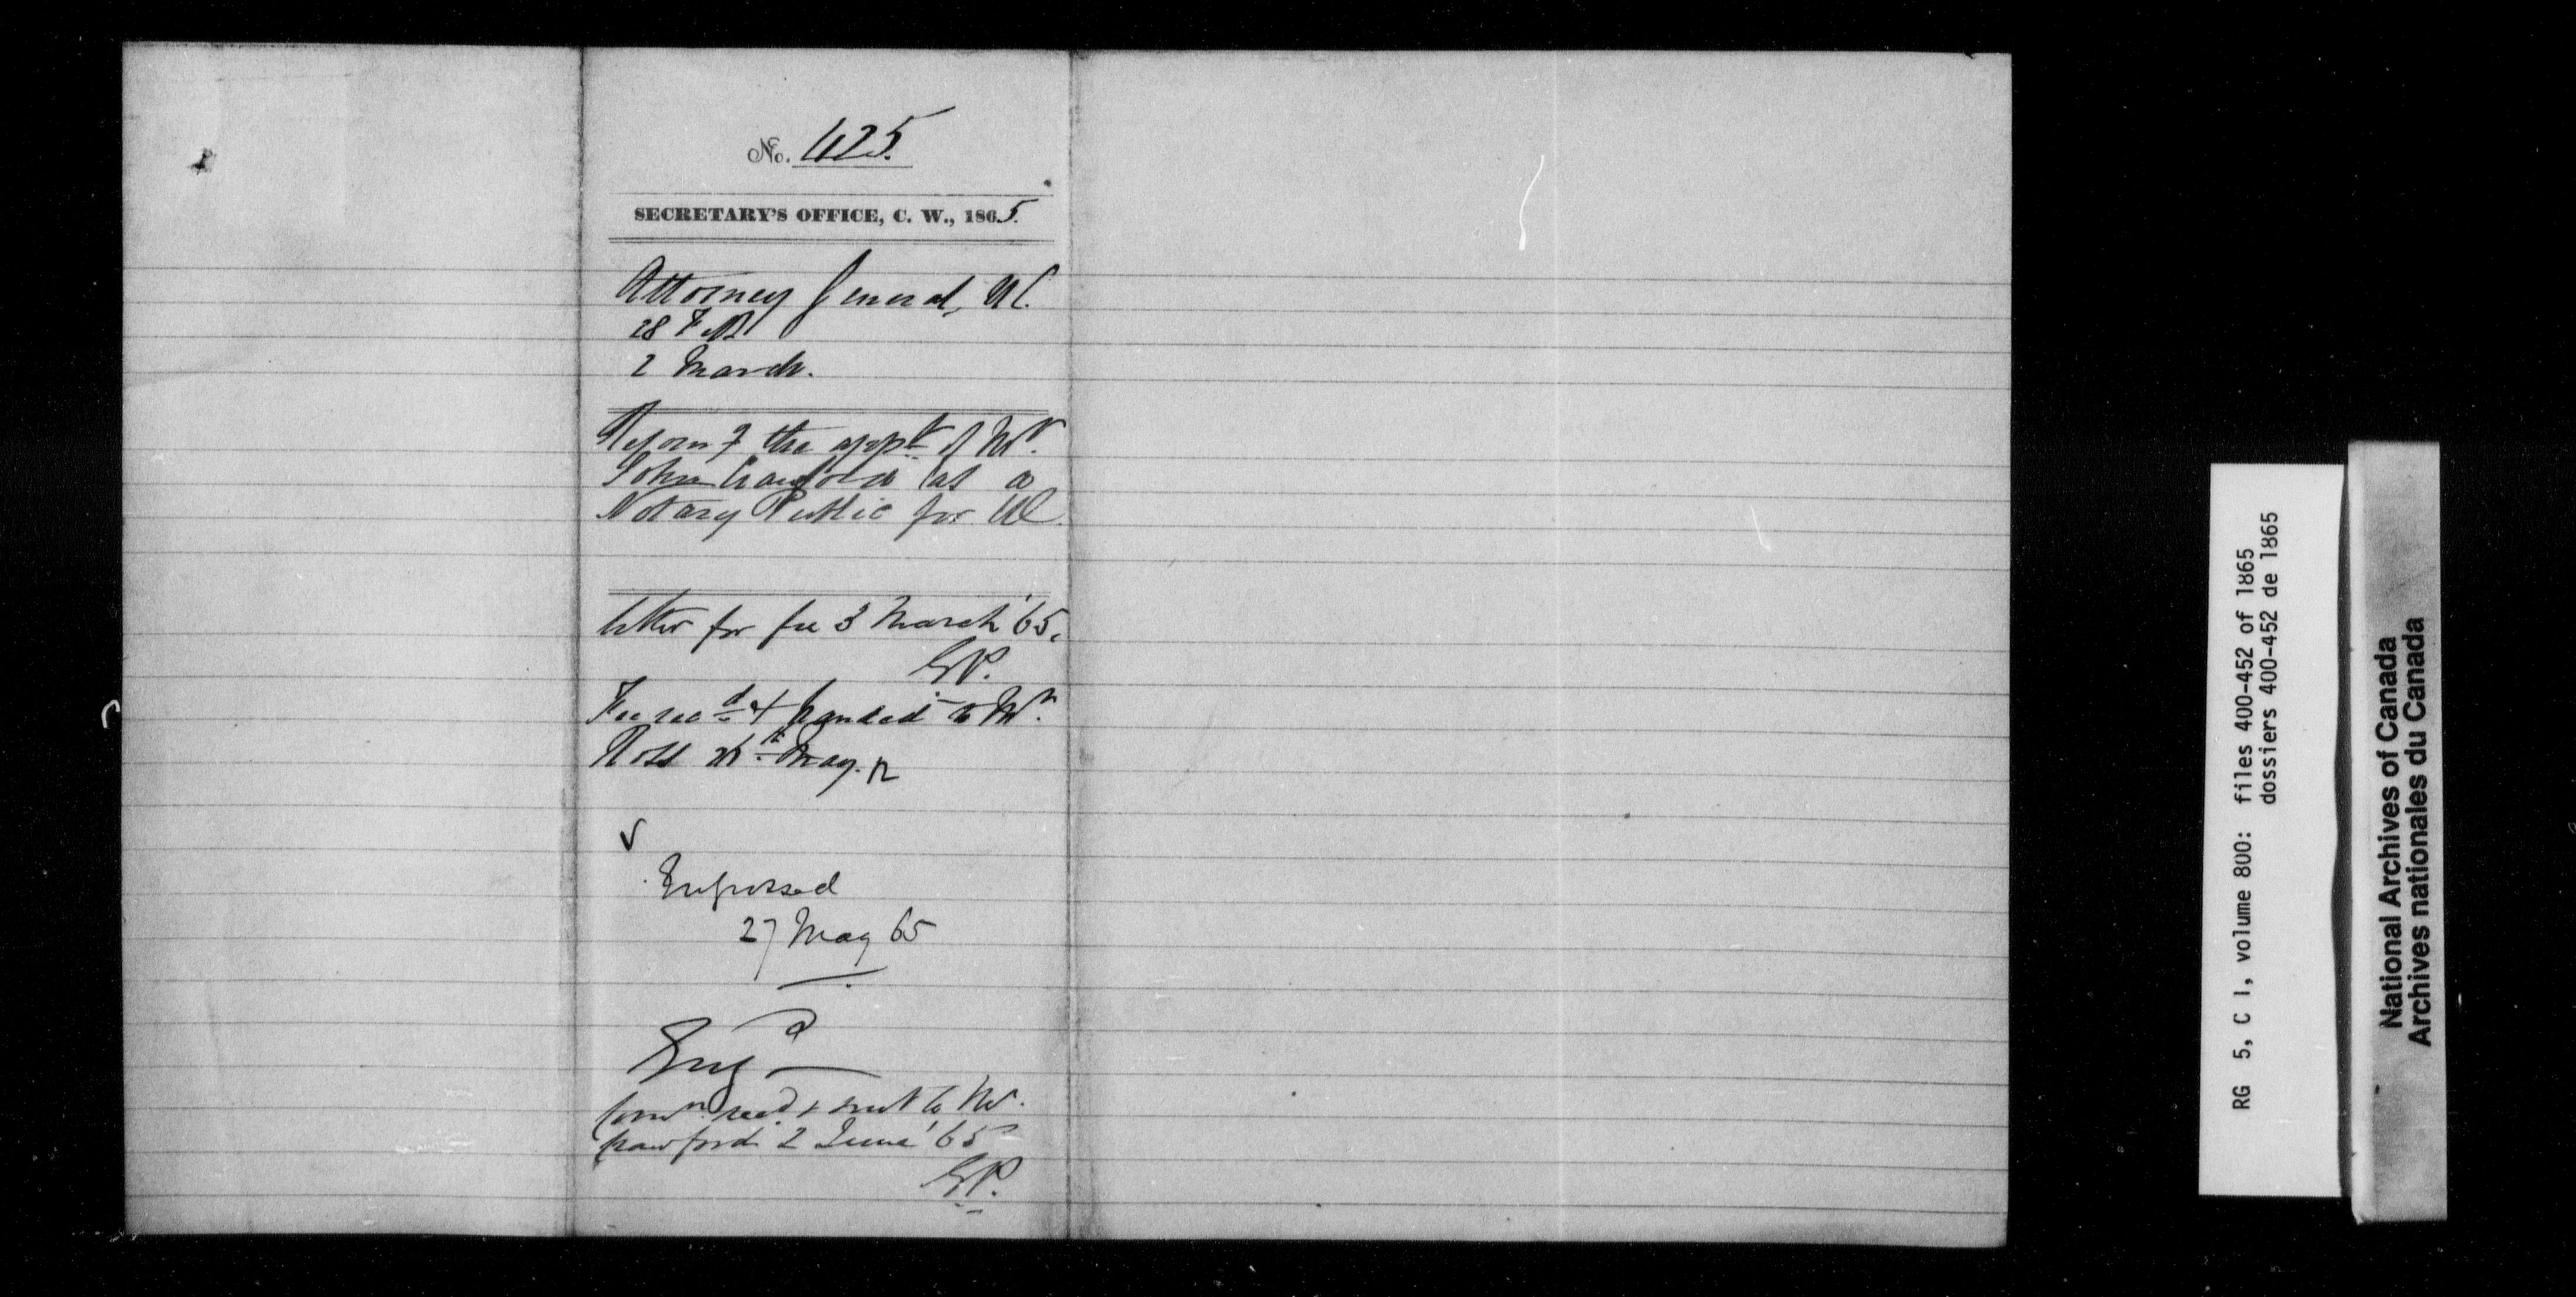 No. 425.
SECRETARY'S OFFICE, C. W., 1865.
Attorney General, UC.
28 Feb
2 March.
the appt of Mr.
John Crawford as a
Notary Public for UC
letter for fee 3 March '65.
GP.
Fee recd & handed to Mr.
Ross 26th May. R
Engrossed
27 May 65
Engd
Comn recd & sent to Mr.
Crawford 2 June '65
GP.
RG 5, C 1, volume 800: files 400-452 of 1865
dossiers 400-452 de 1865
National Archives of Canada
Archives nationales du Canada